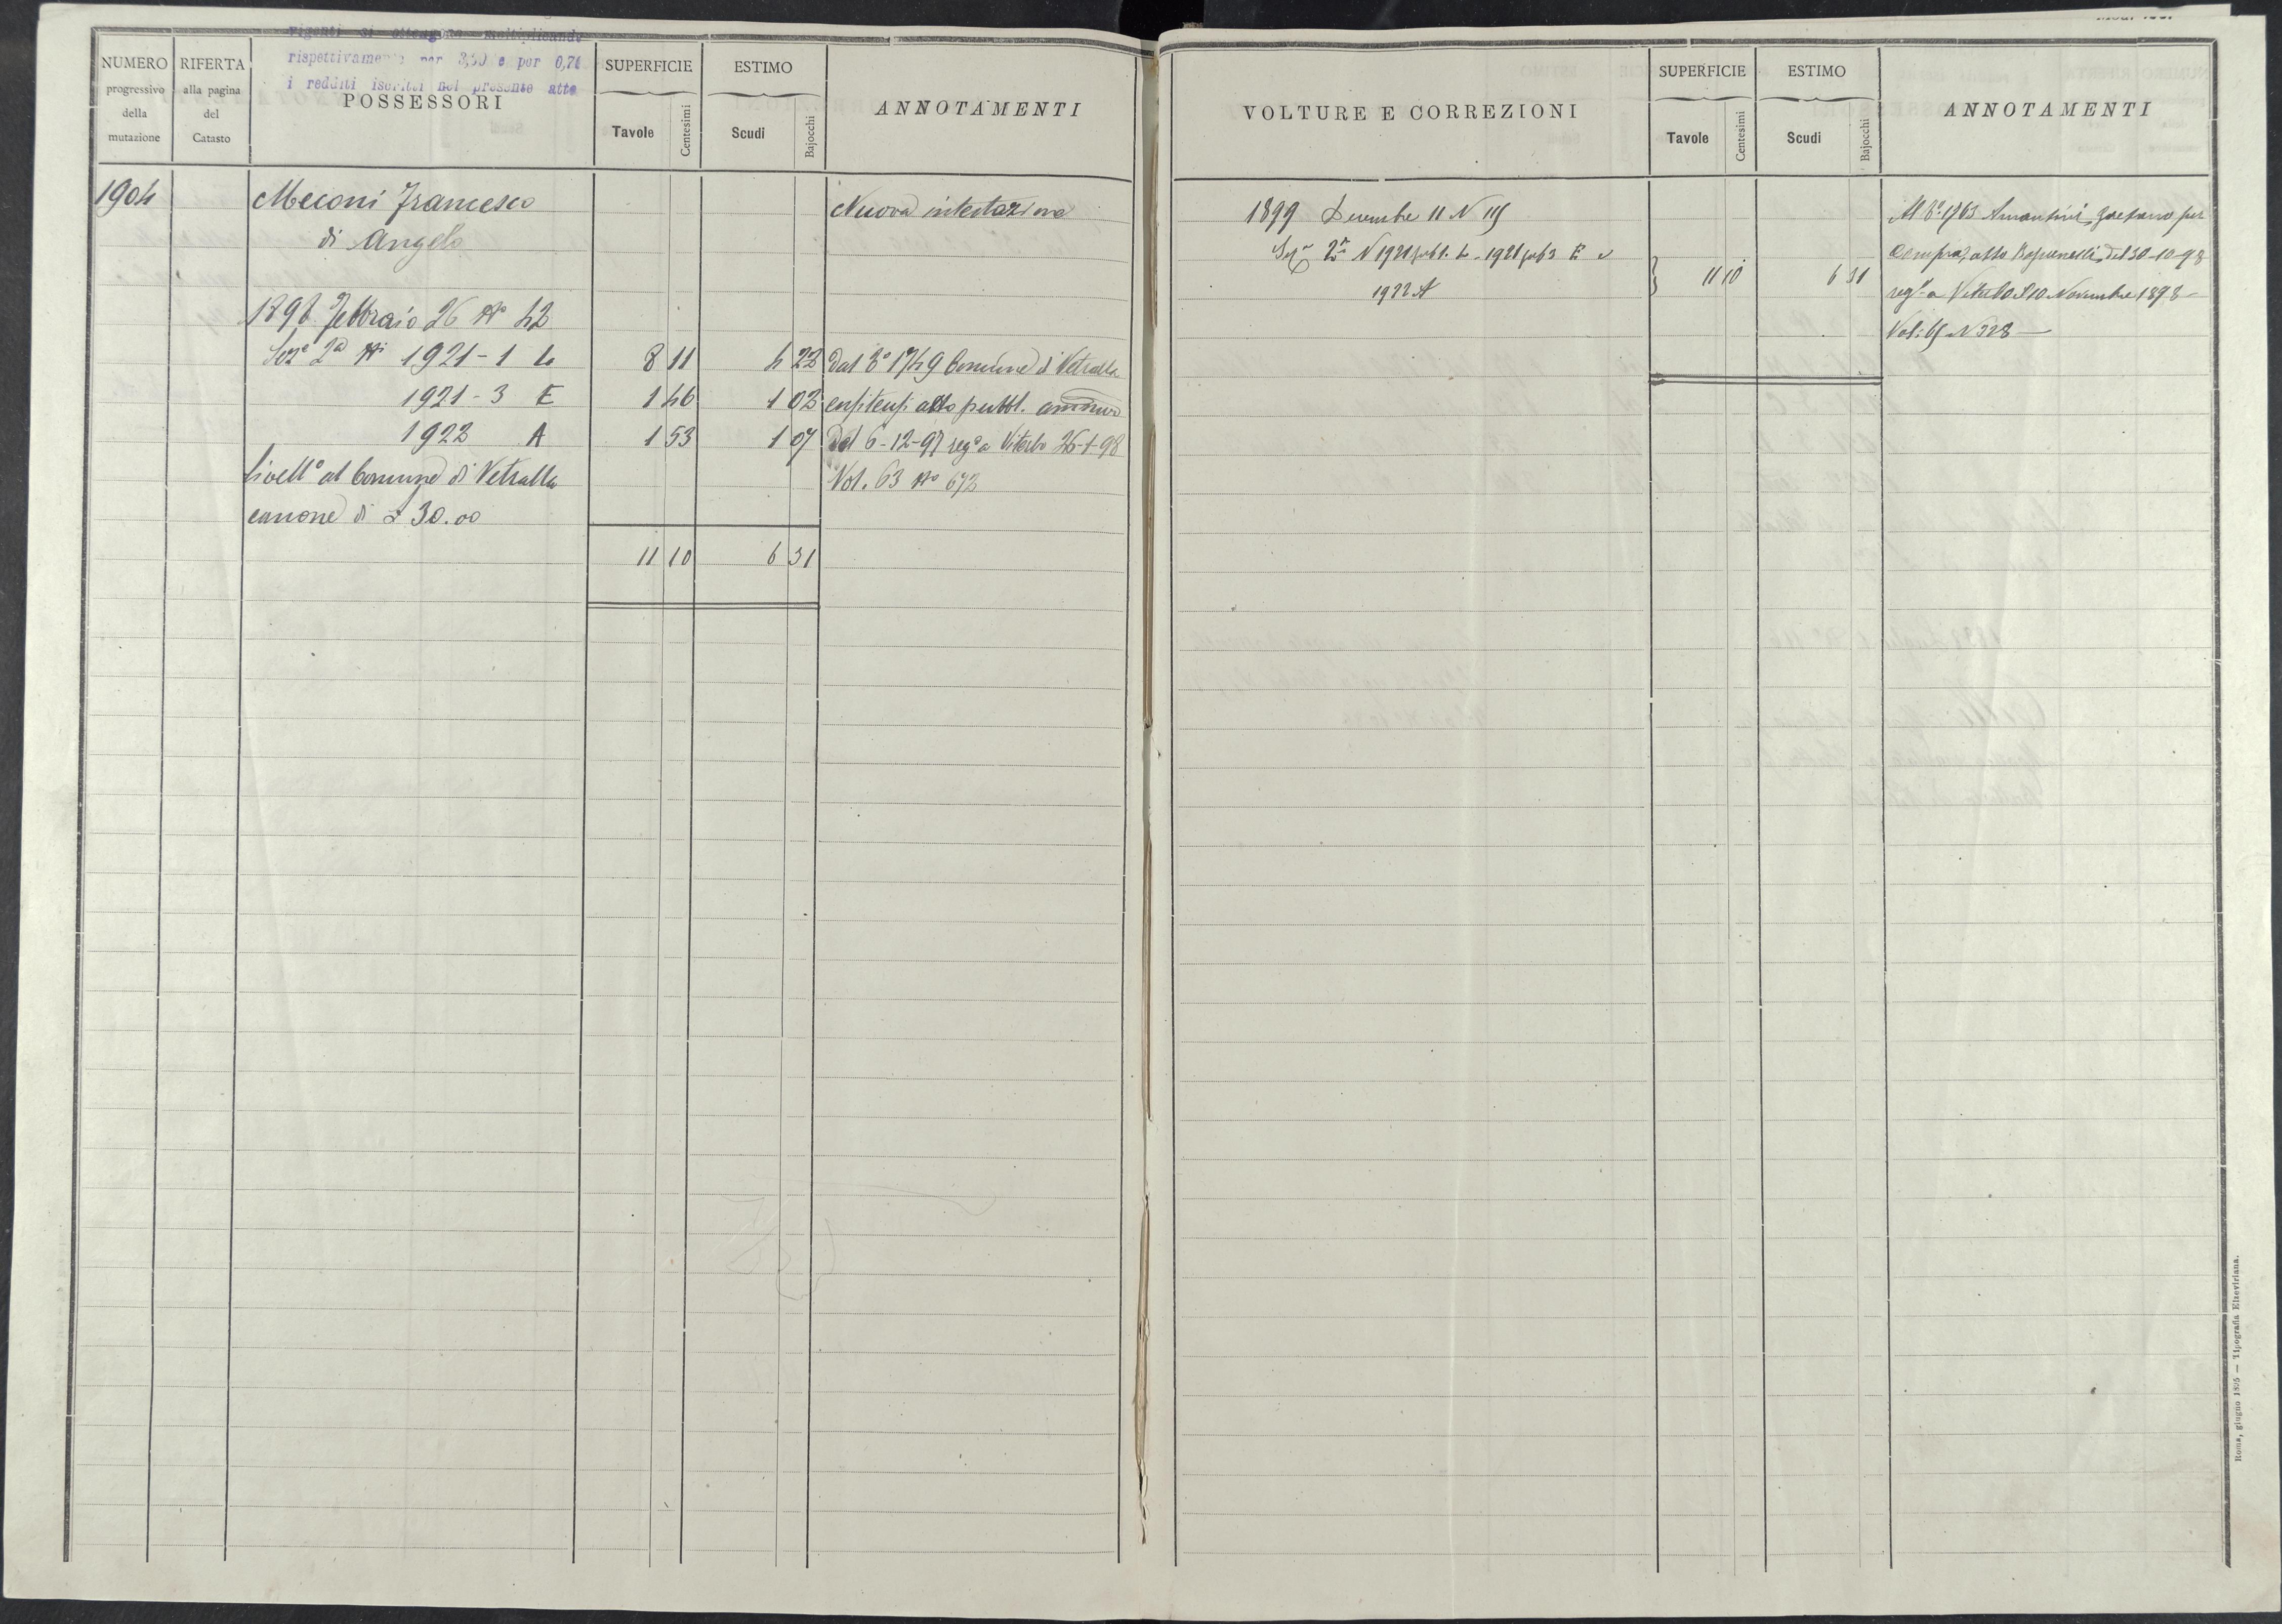 vigenti si ottengono moltiplicando
rispettivamente per 3,30 e per 0,70
i redditi iscritti nel presente atto
NUMERO
progressivo
della
mutazione
RIFERTA
alla pagina
del
Catasto
POSSESSORI
SUPERFICIE
Tavole
Centesimi
ESTIMO
Scudi
Bajocchi
ANNOTAMENTI
1904
Meconi Francesco
di Angelo
Nuova intestazione
1898 Febbraio 26 No 42
Sez.e 2a Ni 1921-1 L 8 11 4 22 Dal 3o 1749 Comune di Vetralla
1921-3 E 1 46 1 02 enfiteusi atto pubbl. ammivo
1922 A 1 53 1 07 del 6-12-97 rego a Viterbo 26-1-98
Livello al Comune di Vetralla Vol. 63 No 672
canone di £ 30.00
11 10 6 31
VOLTURE E CORREZIONI
SUPERFICIE
Tavole
Centesimi
ESTIMO
Scudi
Bajocchi
ANNOTAMENTI
1899 Decembre 11 N 115
2a N 1921 sub 1. L - 1921 sub 3 E e
1922 A
} 11 10 6 31
Al 3o 1763 Amantini Gaetano per
Compra, atto del 30-10-98
rego a Viterbo il 10 Novembre 1898 -
Vol: 65 N 328 -
Roma, giugno 1895 — Tipografia Elzeviriana.